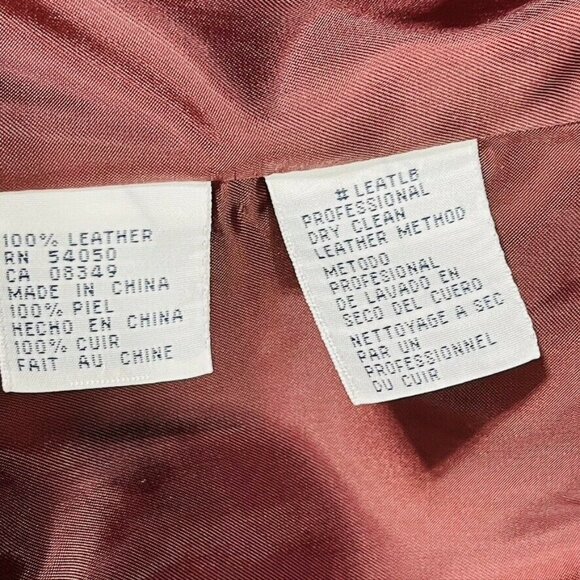 100% LEATHER
RN 54050
CA 08349
MADE IN CHINA
100% PIEL
HECHO EN CHINA
100% CUIR
FAIT AU CHINE
# LEATLB
PROFESSIONAL
DRY CLEAN
LEATHER METHOD
METODO
PROFESIONAL
DE LAVADO EN
SECO DEL CUERO
NETTOYAGE A SEC
PAR UN
PROFESSIONNEL
DU CUIR